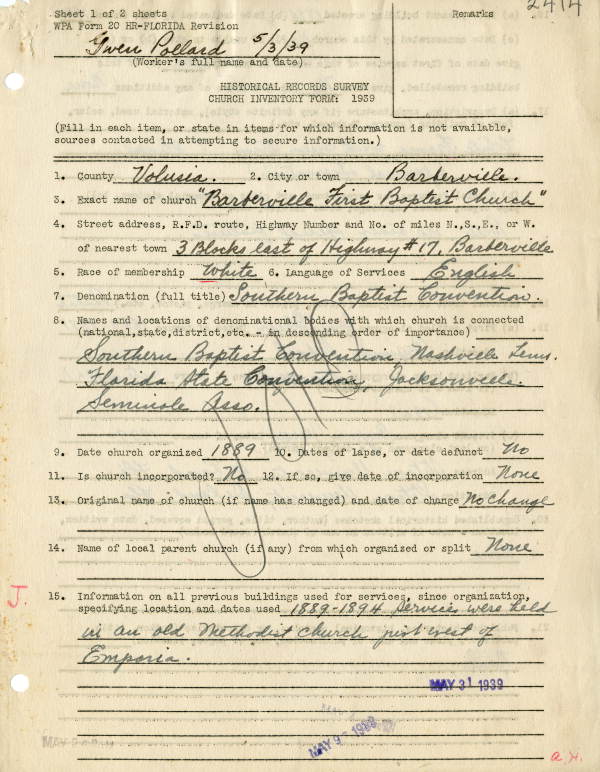 Sheet 1 of 2 sheets
Remarks
2414
WPA Form 20 HR-FLORIDA Revision
Gwen Pollard 5/3/39
(Worker's full name and date)
HISTORICAL RECORDS SURVEY
CHURCH INVENTORY FORM: 1939
(Fill in each item, or state in items for which information is not available,
sources contacted in attempting to secure information.)
1. County Volusia. 2. City or town Barberville.
3. Exact name of church "Barberville First Baptist Church"
4. Street address, R.F.D. route, Highway Number and No. of miles N.,S.,E., or W.
of nearest town 3 Blocks east of Highway #17, Barberville
5. Race of membership White 6. Language of Services English
7. Denomination (full title) Southern Baptist Convention.
8. Names and locations of denominational bodies with which church is connected
(national,state,district,etc. - in descending order of importance)
Southern Baptist Convention, Nashville Tenn.
Florida State Convention, Jacksonville.
Seminole Asso.
9. Date church organized 1889 10. Dates of lapse, or date defunct No
11. Is church incorporated? No 12. If so, give date of incorporation None
13. Original name of church (if name has changed) and date of change No Change
14. Name of local parent church (if any) from which organized or split None
15. Information on all previous buildings used for services, since organization,
specifying location and dates used 1889-1894 Services were held
in an old Methodist church just west of
Emporia.
J.
MAY 31 1939
a.H.